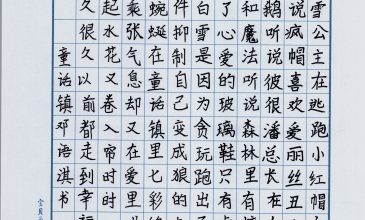 雪公主在逃跑小红帽
说疯帽喜欢爱丽丝丑
鹅听说彼得潘总长
和魔法听说森林里有
了心爱的玻璃鞋只有
白雪是因为贪玩跑出
件抑制自己变成狼的
蜿蜒在童话镇里七彩
乖张气息却又在爱里
起水花又卷入一帘时
久很久以前都走到幸福
童话镇邓语淇书